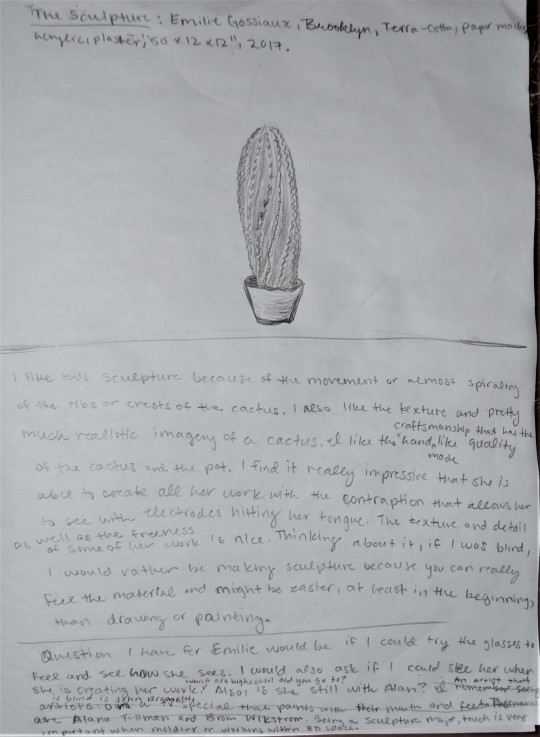 The Sculpture: Emilie Gossiaux, Brooklyn, Terra-cotta, paper mache,
acrylic, plaster, 50 x 12 x 12", 2017.
I like this sculpture because of the movement or almost spiraling
of the ribs or crests of the cactus. I also like the texture and pretty
much realistic imagery of a cactus. I like the craftsmanship that has the "hand made like quality
of the cactus and the pot. I find it really impressive that she is
able to create all her work with the contraption that allows her
to see with electrodes hitting her tongue. The texture and detail
as well as the freeness
of some of her work is nice. Thinking about it, if I was blind,
I would rather be making sculpture because you can really
feel the material and might be easier, at least in the beginning,
than drawing or painting.
Question I have for Emilie would be if I could try the glasses to
feel and see how she sees. I would also ask if I could see her when
she is creating her work? which art highschool did you go to? Also, is she still with Alan? An artist that
is blind is John Bramblitt.
artists special that paints with their mouth and feet
are Alana Tillman and Brom Wikstrom. Being a sculpture major, touch is very
important when working within 3D space.